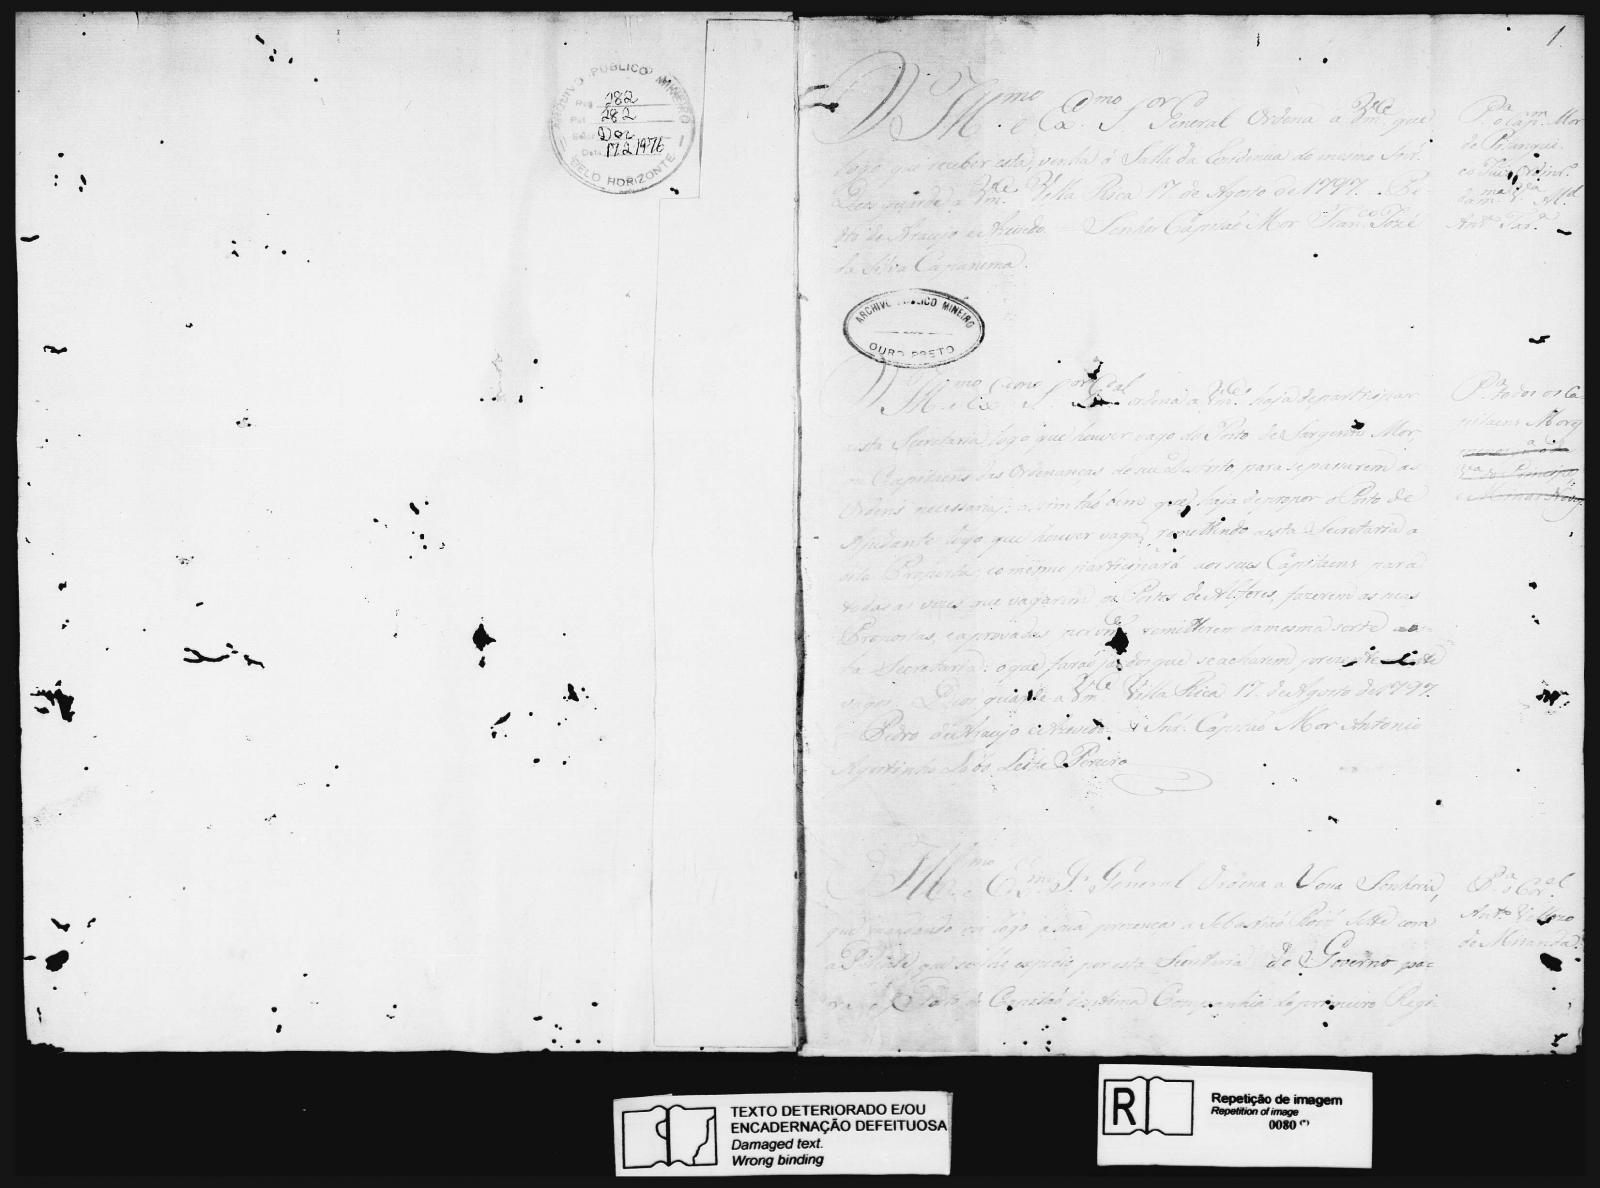 ARCHIVO PUBLICO MINEIRO
282
282
Doc
Data 17.2.1976
BELO HORIZONTE
1.
O Ill.mo e Ex.mo S.or General Ordena a Vm.ce que
logo que receber esta, venha á Salla da Rezidencia do mesmo Snr.
Deos guarde a Vm.ce Villa Rica 17 de Agosto de 1797. Pe
dro de Araujo e Azevedo. Senhor Capitaõ Mor Fran.co Jozé
da Silva Capanema.
P.a o Cap.am Mor
de Pitangui
ARCHIVO PUBLICO MINEIRO
OURO PRETO
O Ill.mo e Ex.mo S.or G.al ordena a Vm.ce haja departicipar
a esta Secretaria logo que houver vago do Posto de Sargento Mor,
ou Capitaens das Ordenanças do seu Districto para se passarem as
Ordens necessarias: assim taõ bem que haja de propor o Posto de
Ajudante logo que houver vaga, remettendo a esta Secretaria a
dita Proposta, e o mesmo participará aos seus Capitaens para
todas as vezes que vagarem os Postos de Alferes, fazerem as suas
Propostas, e aprovadas por Vm.ce remetterem da mesma sorte a es-
ta Secretaria: o que faraõ já dos que se acharem prezentemente
vagos. Deos guarde a Vm.ce Villa Rica 17 de Agosto de 1797.
Pedro de Araujo e Azevedo. Snr. Capitaõ Mor Antonio
Agostinho Lobo Leite Pereira
P.a todos os Ca
pitaens Mores
O Ill.mo e Ex.mo S.r General Ordena a Vossa Senhoria,
que mandando vir logo á sua prezença a Sebastiaõ
a Patente que se lhe expedio por esta Secretaria do Governo pa=
ra o Posto de Capitaõ da setima Companhia do primeiro Regi
P.a o Cor.el
Ant.o Vellozo
de Miranda
TEXTO DETERIORADO E/OU
ENCADERNAÇÃO DEFEITUOSA
Damaged text.
Wrong binding
R
Repetição de imagem
Repetition of image
0080 (*)